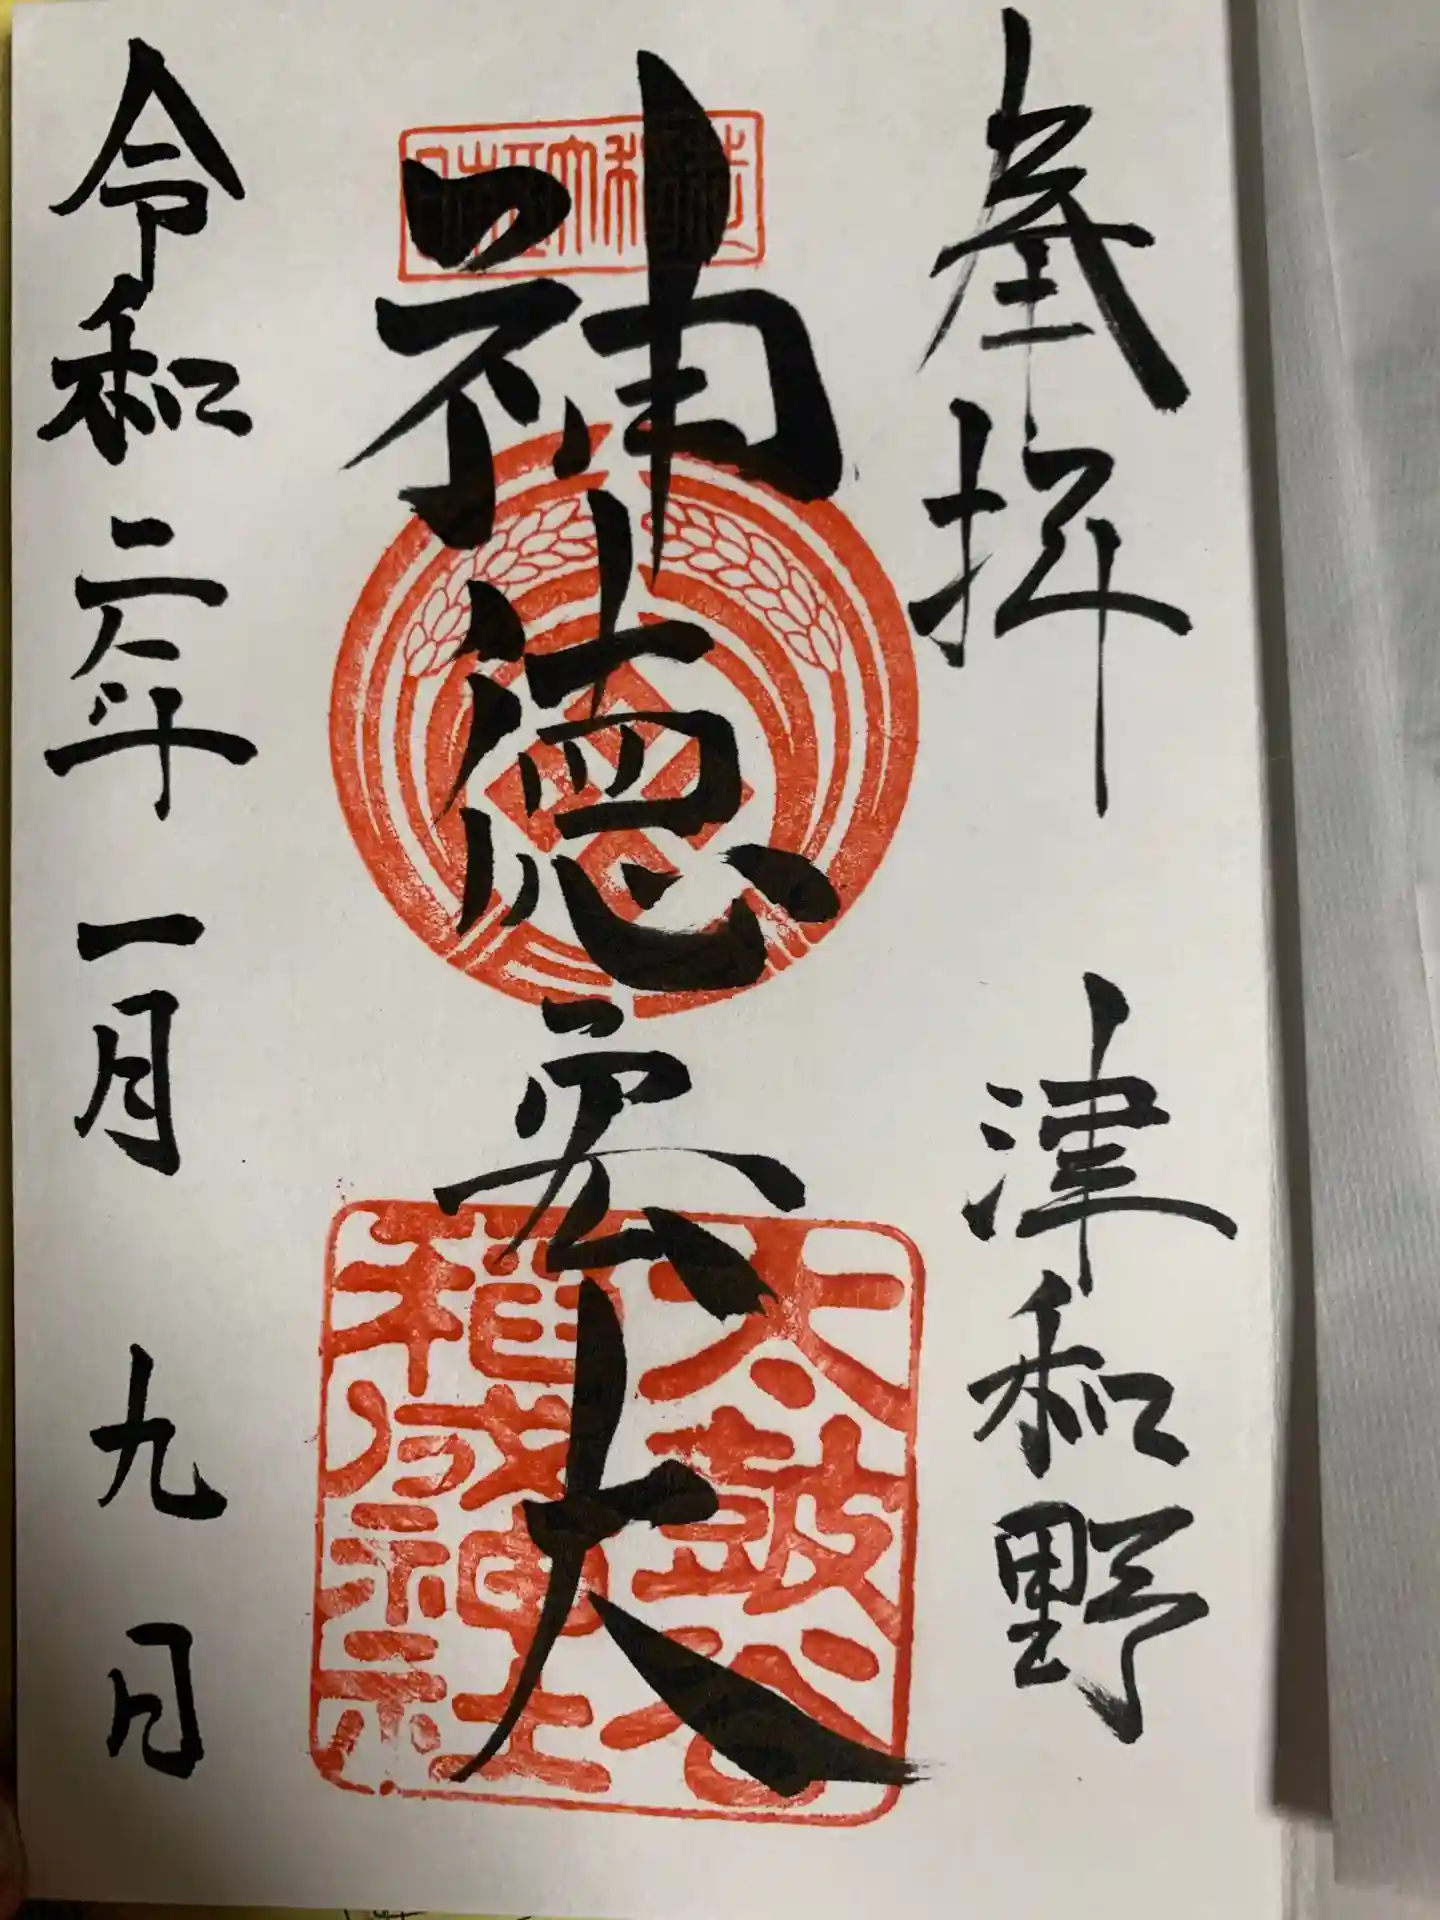 奉拝　津和野
神徳宏大
太皷谷
稲成神社
令和二年一月九日